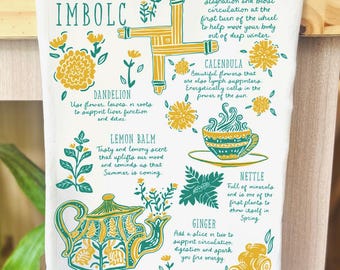 IMBOLC
digestion and boost
circulation at the
first turn of the wheel
to help move your body
out of deep winter.
CALENDULA
Beautiful flowers that are
also lymph supporters.
Energetically calls in the
power of the sun.
DANDELION
Use flower, leaves, n roots
to support liver function
and detox.
LEMON BALM
Tasty and lemony scent
that uplifts our mood
and reminds us that
Summer is coming.
NETTLE
Full of minerals
and is one of the
first plants to
show itself in
Spring.
GINGER
Add a slice n tea to
support circulation,
digestion and spark
you fire energy.